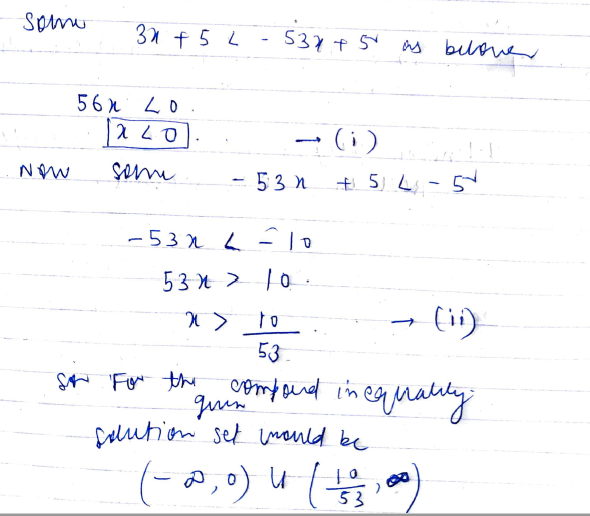 Solve 3x + 5 < - 53x + 5 as below
56x < 0.
x < 0. → (i)
Now solve - 53x + 5 < - 5
-53x < -10
53x > 10.
x > 10/53. → (ii)
So For the given compound inequality
solution set would be
(-∞, 0) U (10/53, ∞)